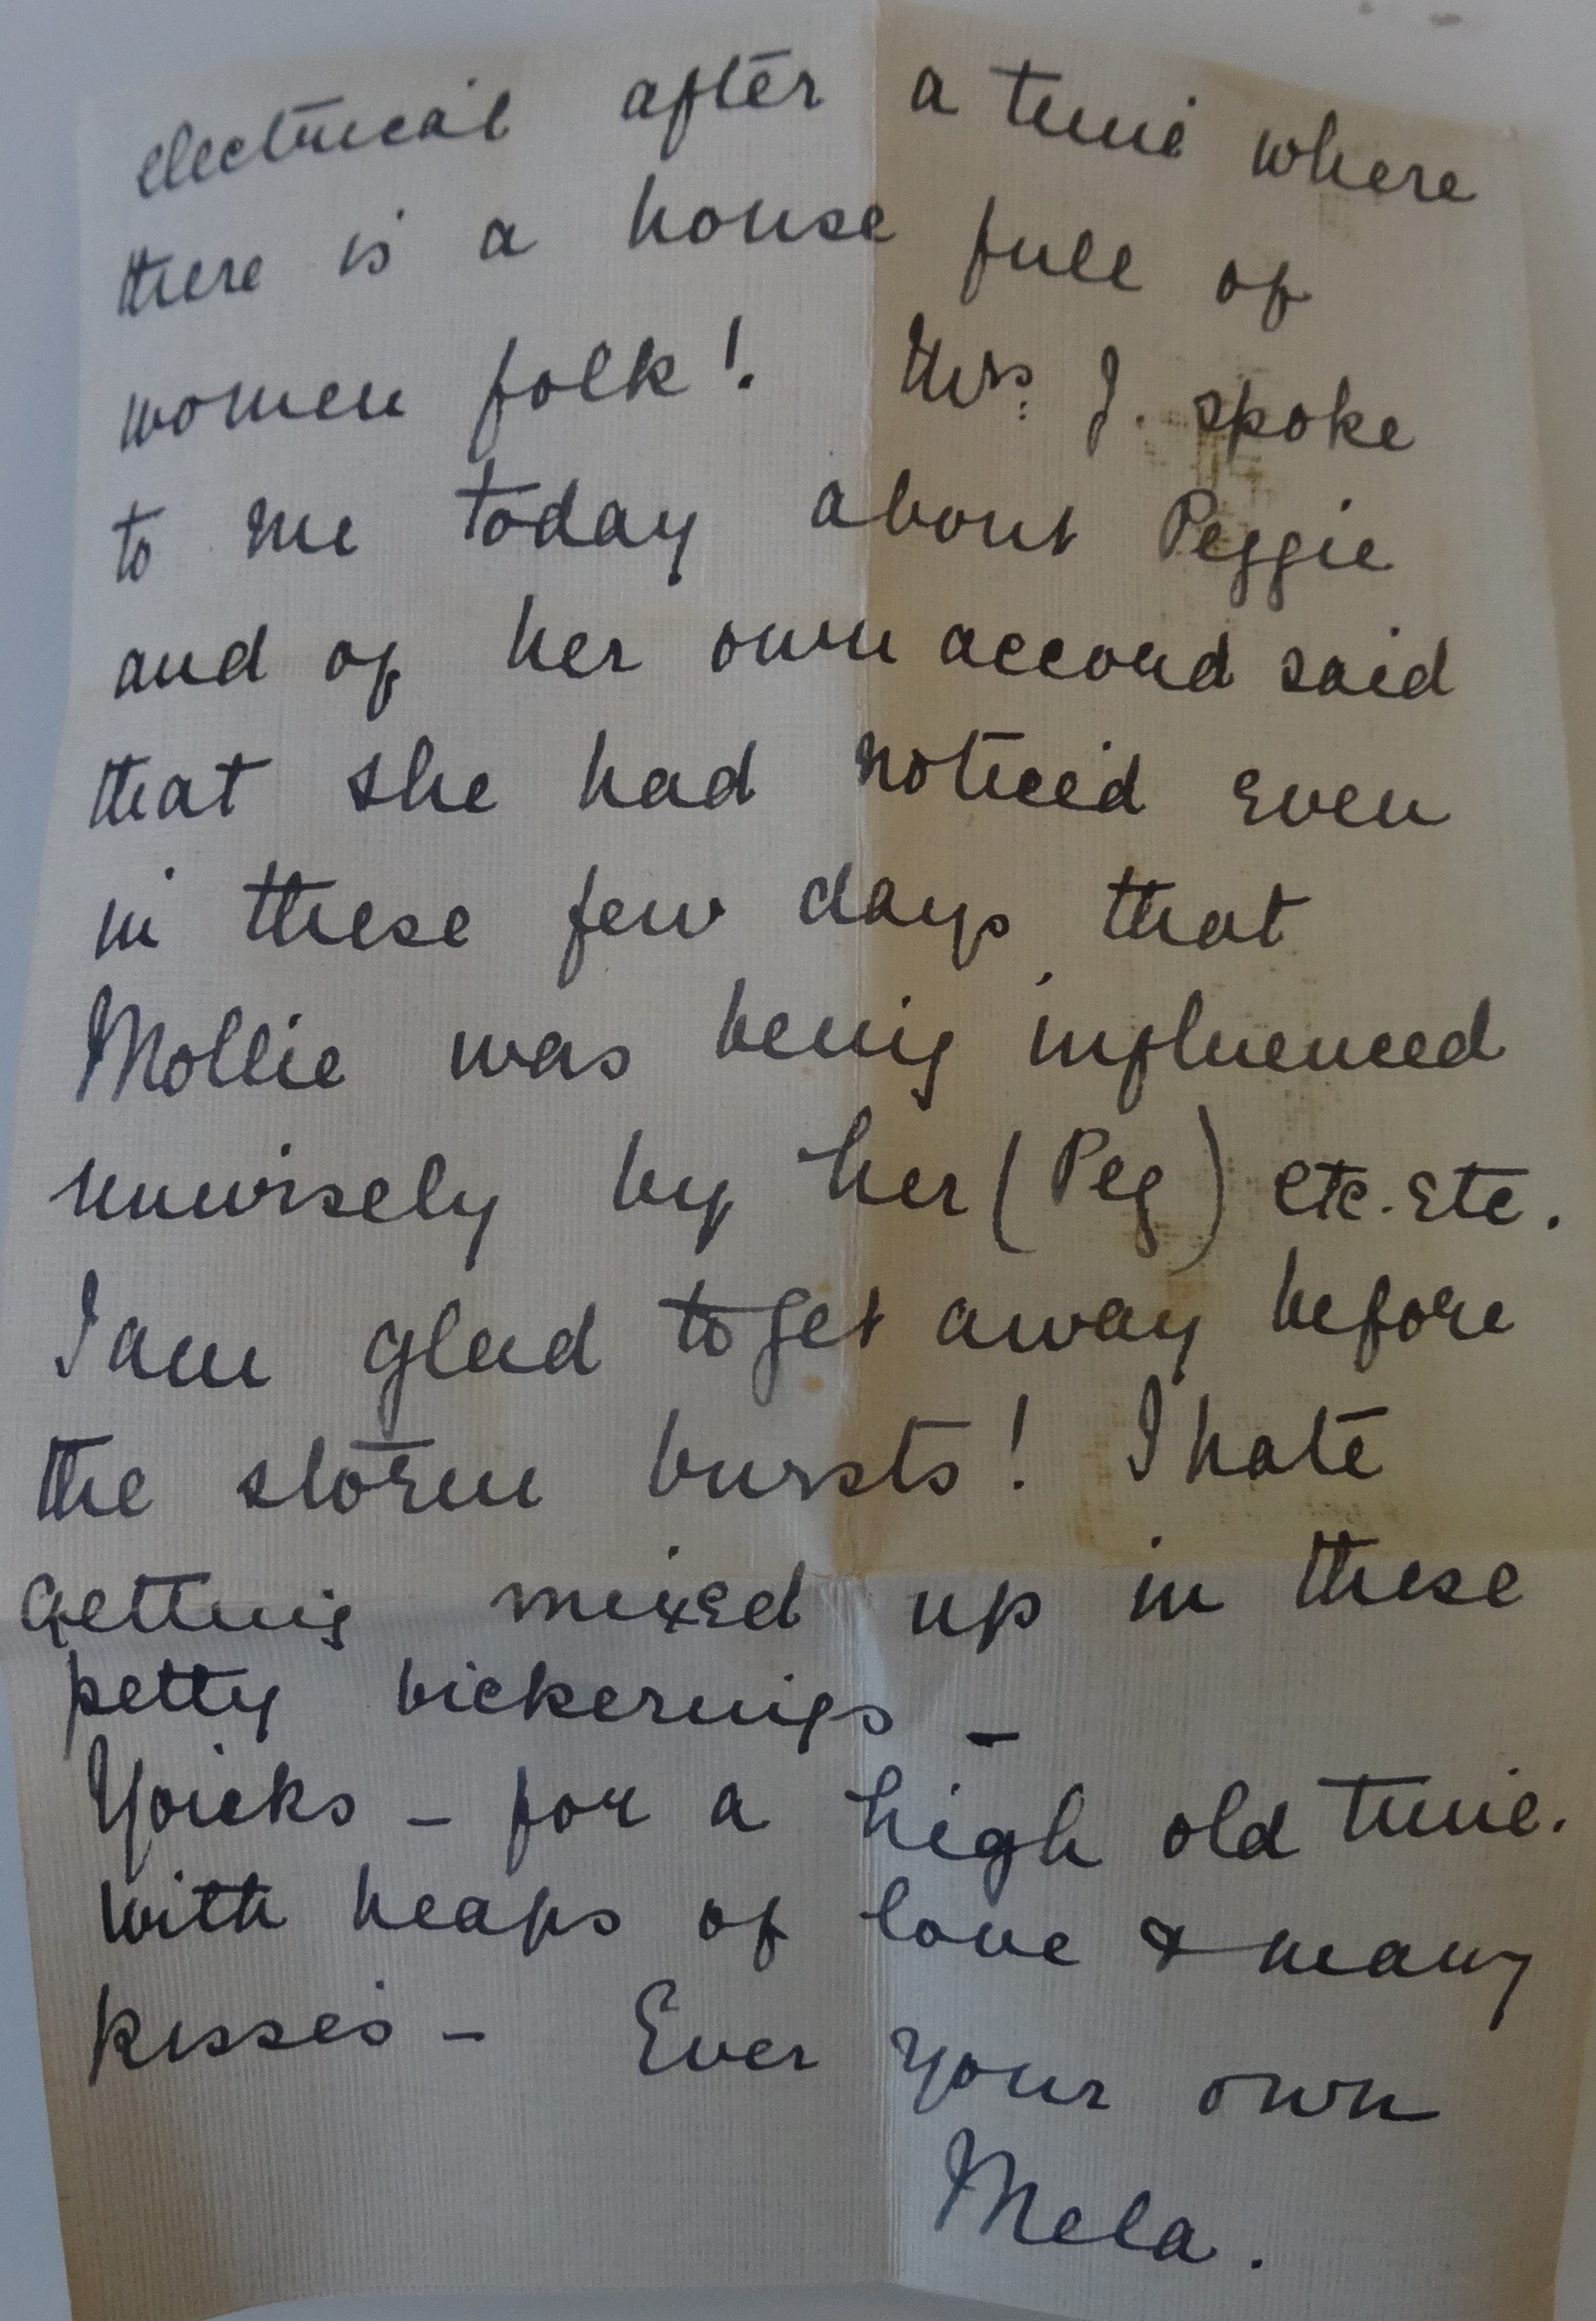 electrical after a time where
there is a house full of
women folk! Mrs. J. spoke
to me today about Peggie
and of her own accord said
that she had noticed even
in these few days that
Mollie was being influenced
unwisely by her (Peg) etc. etc.
I am glad to get away before
the storm bursts! I hate
getting mixed up in these
petty bickerings –
Yoicks – for a high old time.
With heaps of love & many
kisses – Ever your own
Mela.